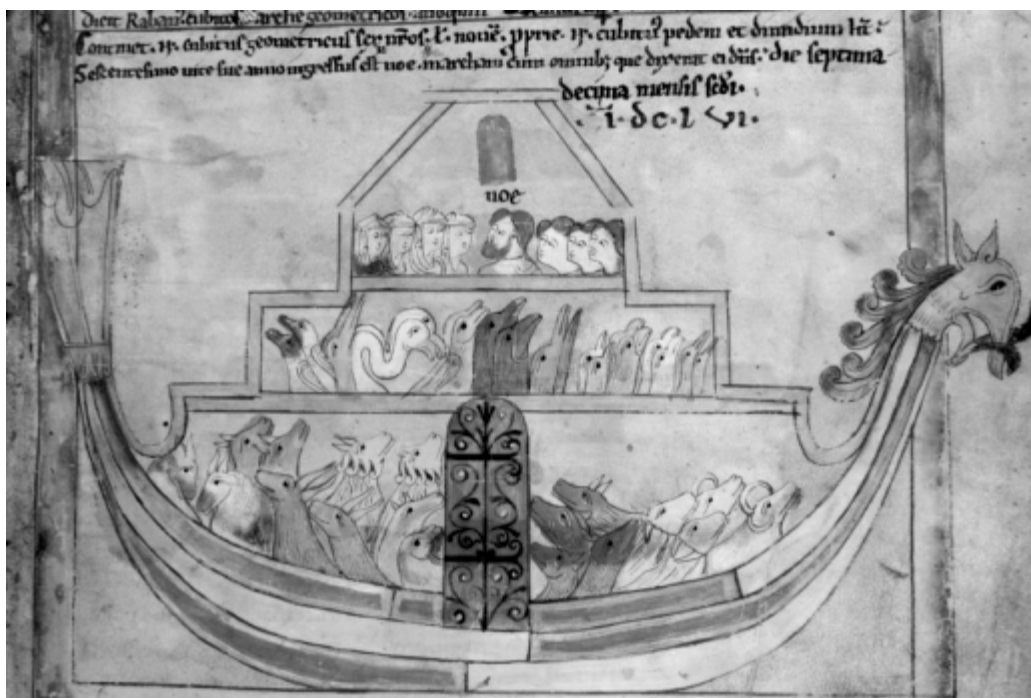 dicit Raban. cubitos arche geometricos
Continet. ix. cubitus geometricus sex nr̄os. ł. novē. pprie. ix. cubitꝰ pedem et dimidium
Sescentesimo vite sue anno ingressus est noe. marcham cum omnibꝫ que dixerat ei dn̄s. die septima
decima mensis scdi.
.i. dc. l vi.
noe